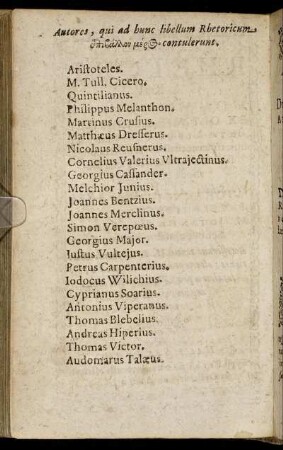 Autores, qui ad hunc libellum Rhetoricum
contulerunt.
Aristoteles.
M. Tull. Cicero.
Quintilianus.
Philippus Melanthon.
Martinus Crusius.
Matthæus Dresserus.
Nicolaus Reusnerus.
Cornelius Valerius Vltrajectinus.
Georgius Cassander.
Melchior Junius.
Joannes Bentzius.
Joannes Merclinus.
Simon Verepœus.
Georgius Major.
Iustus Vultejus.
Petrus Carpenterius.
Iodocus Wilichius.
Cyprianus Soarius.
Antonius Viperanus.
Thomas Blebelius.
Andreas Hiperius.
Thomas Victor.
Audomarus Talæus.